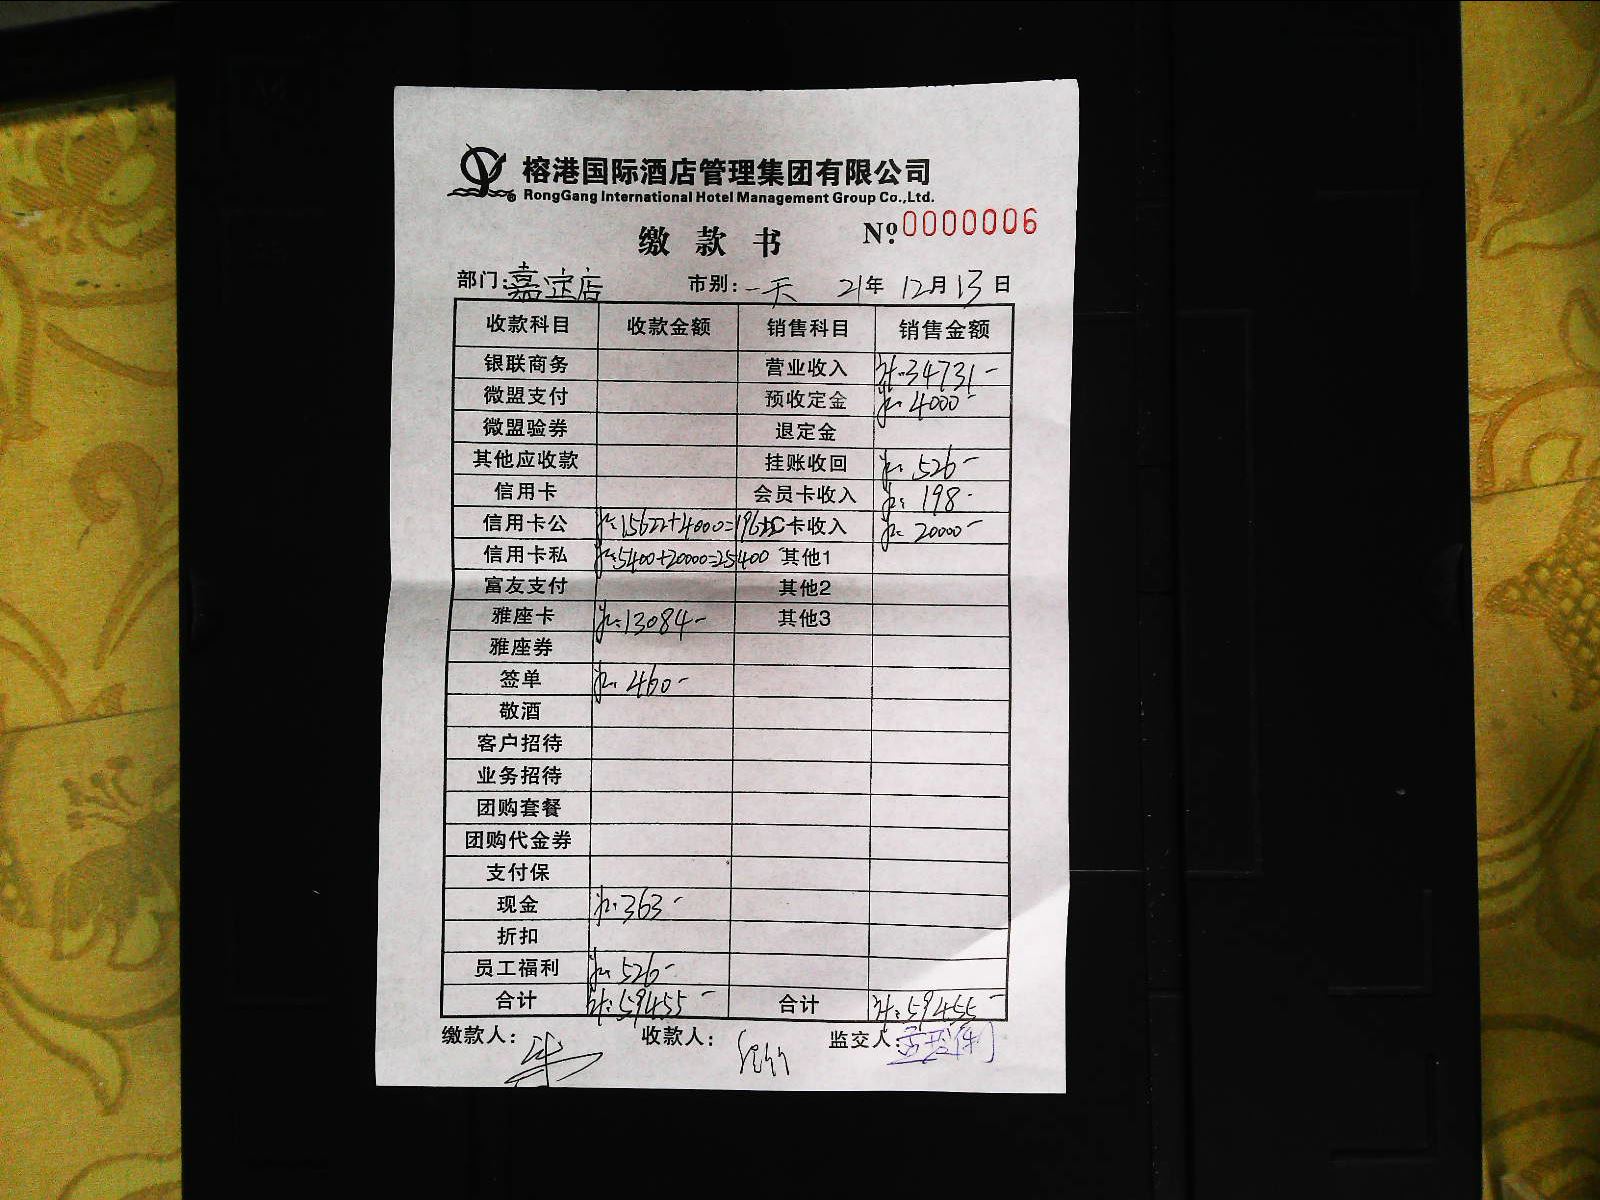 榕港国际酒店管理集团有限公司
RongGang International Hotel Management Group Co.,Ltd.
缴款书 Nº 0000006
部门:嘉定店 市别:一天 21年 12月 13日
收款科目 收款金额 销售科目 销售金额
银联商务 营业收入 计:34731-
微盟支付 预收定金 4000-
微盟验券 退定金
其他应收款 挂账收回 526-
信用卡 会员卡收入 198-
信用卡公 15622+4000=19622 IC卡收入 20000-
信用卡私 5400+20000=25400 其他1
富友支付 其他2
雅座卡 13084- 其他3
雅座券
签单 460-
敬酒
客户招待
业务招待
团购套餐
团购代金券
支付保
现金 363-
折扣
员工福利 526-
合计 计:59455- 合计 计:59455-
缴款人: 收款人: 监交人: